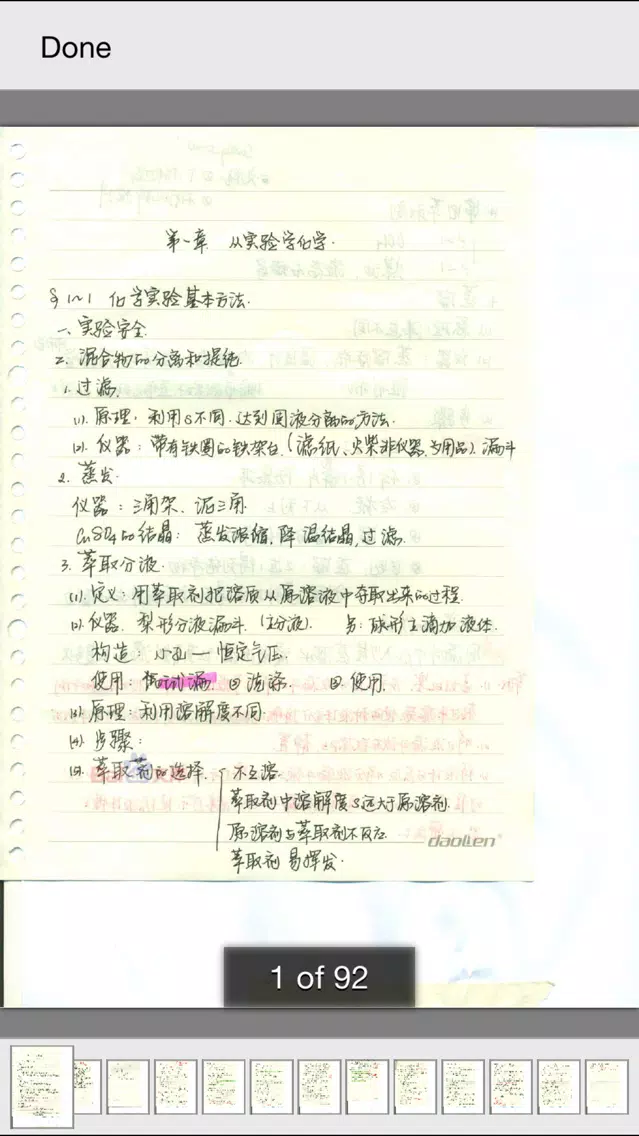 Done
第一章 从实验学化学.
§1~1 化学实验基本方法.
一. 实验安全.
二. 混合物的分离和提纯.
1. 过滤.
(1). 原理: 利用S不同. 达到固液分离的方法.
(2). 仪器: 带有铁圈的铁架台. (滤纸、火柴非仪器, 为用品). 漏斗
2. 蒸发.
仪器: 三角架、泥三角.
CuSO4的结晶: 蒸发浓缩, 降温结晶, 过滤.
3. 萃取分液.
(1). 定义: 用萃取剂把溶质从原溶液中夺取出来的过程.
(2). 仪器. 梨形分液漏斗. (主分液). 另: 球形主滴加液体.
构造: 小孔 — 恒定气压.
使用: 漏. ② 洗涤. 使用.
(3). 原理: 利用溶解度不同.
(4). 步骤:
(5). 萃取剂的选择. 不互溶.
萃取剂中溶解度S远大于原溶剂.
原溶剂与萃取剂不反应.
萃取剂易挥发.
daolien
1 of 92